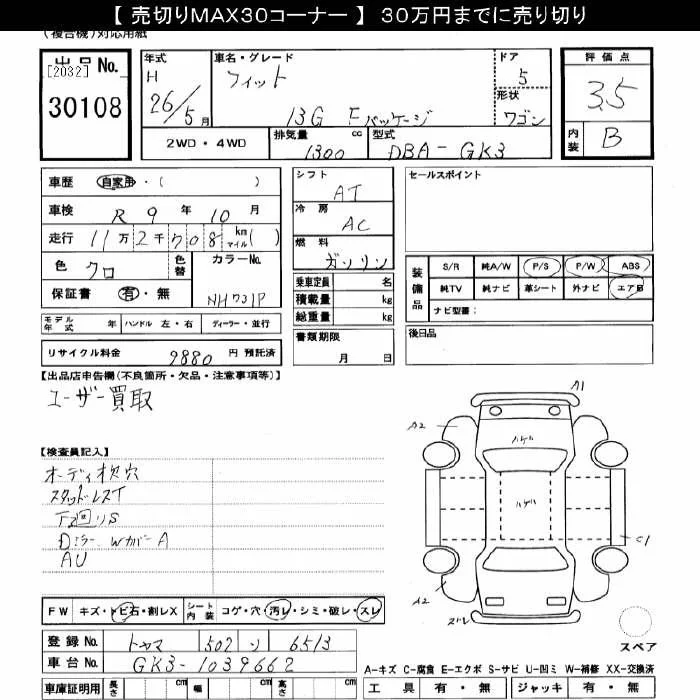 【 売切りMAX30コーナー 】 30万円までに売り切り
(複合機)対応用紙
出品No.
[2032]
30108
年式
H
26/5月
車名・グレード
フィット
13G Fパッケージ
ドア
5
形状
ワゴン
2WD・4WD
排気量 cc
1300
型式
DBA-GK3
評価点
3.5
内装
B
車歴 自家用・( )
車検 R 9 年 10 月
走行 11万2千708 km マイル( )
色 クロ
色替
カラーNo.
NH731P
保証書 有・無
モデル年式 年 ハンドル 左・右 ディーラー・並行
リサイクル料金 9880 円 預託済
シフト
AT
冷房
AC
燃料
ガソリン
乗車定員 名
積載量 kg
総重量 kg
書類期限
月 日
セールスポイント
装備品
S/R 純A/W P/S P/W ABS
純TV 純ナビ 革シート 外ナビ エアB
ナビ型番:
後日品
【出品店申告欄(不良箇所・欠品・注意事項等)】
ユーザー買取
【検査員記入】
オーディオ欠穴
スタッドレスT
D ミラー、Wカバー A
AU
A1
A2
ハゲル
ハゲル
C1
A2
スレ
スペア
FW キズ・トビ石・割レX シート内装 コゲ・穴・汚レ・シミ・破レ・スレ
登録No. トヤマ 502 ソ 6513
車台No. GK3-1039662
車庫証明用 長さ cm 幅 cm 高さ cm
A-キズ C-腐食 E-エクボ S-サビ U-凹ミ W-補修 XX-交換済
工具 有・無 ジャッキ 有・無